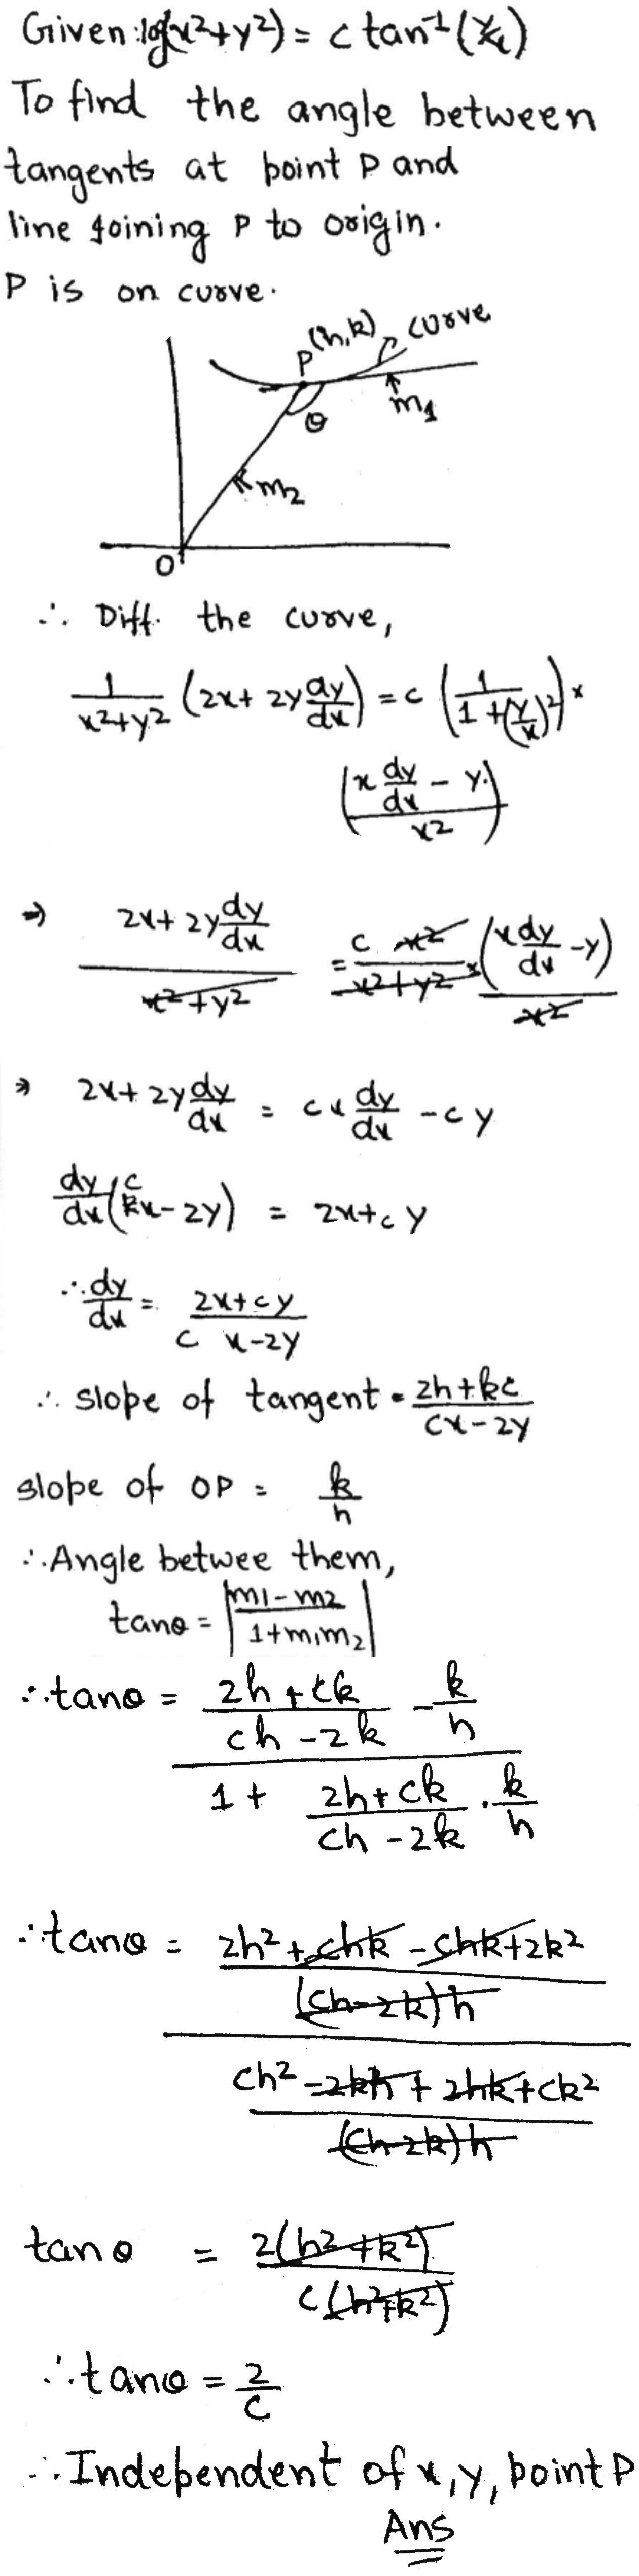 Given: log(x²+y²) = c tan⁻¹(y/x)
To find the angle between
tangents at point P and
line joining P to origin.
P is on curve.
P(h,k) curve
m₁
θ
m₂
O
∴ Diff. the curve,
1/(x²+y²) (2x + 2y dy/dx) = c (1/(1+(y/x)²)) ×
((x dy/dx - y)/x²)
⇒ (2x + 2y dy/dx)/(x²+y²) = (c x²)/(x²+y²) × (x dy/dx - y)/x²
⇒ 2x + 2y dy/dx = cx dy/dx - cy
dy/dx (cx - 2y) = 2x + cy
∴ dy/dx = (2x + cy)/(c x - 2y)
∴ slope of tangent = (2h + kc)/(cx - 2y)
slope of OP = k/h
∴ Angle betwee them,
tanθ = |(m1 - m2)/(1 + m1m2)|
∴ tanθ = ((2h + ck)/(ch - 2k) - k/h)/(1 + (2h + ck)/(ch - 2k) · k/h)
∴ tanθ = ((2h² + chk - chk + 2k²)/((ch - 2k)h))/((ch² - 2kh + 2hk + ck²)/((ch - 2k)h))
tanθ = 2(h² + k²)/c(h² + k²)
∴ tanθ = 2/c
∴ Independent of x, y, point P
Ans